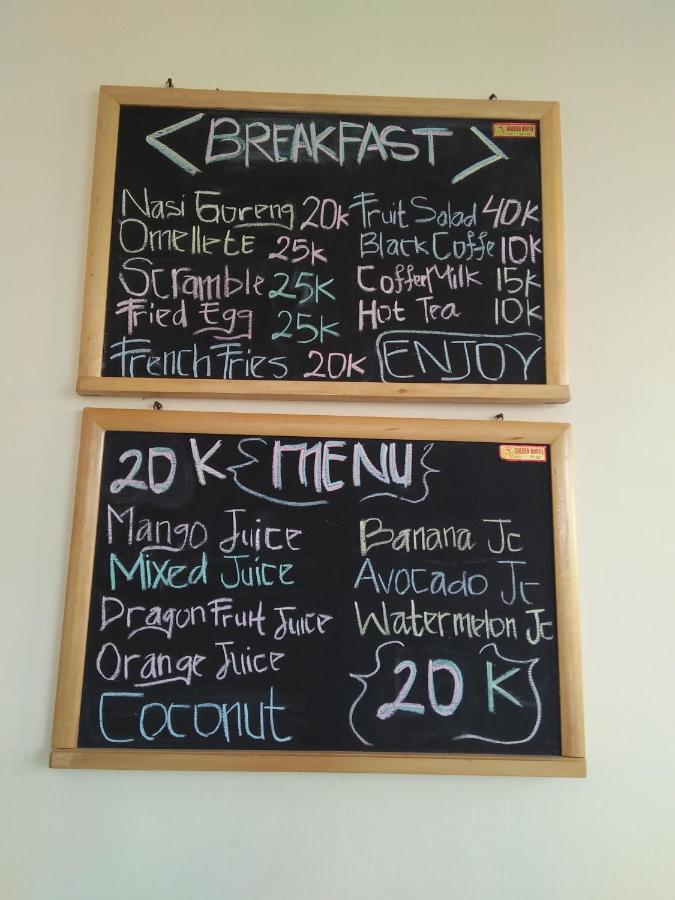 < BREAKFAST >
GOLDEN HORSE
Nasi Goreng 20K
Omellete 25K
Scramble 25K
Fried Egg 25K
French Fries 20K
Fruit Salad 40K
Black Coffe 10K
Coffee Milk 15K
Hot Tea 10K
ENJOY
20 K {MENU}
GOLDEN HORSE
Mango Juice
Mixed Juice
Dragon Fruit Juice
Orange Juice
Coconut
Banana Jc
Avocado Jc
Watermelon Jc
{20 K}